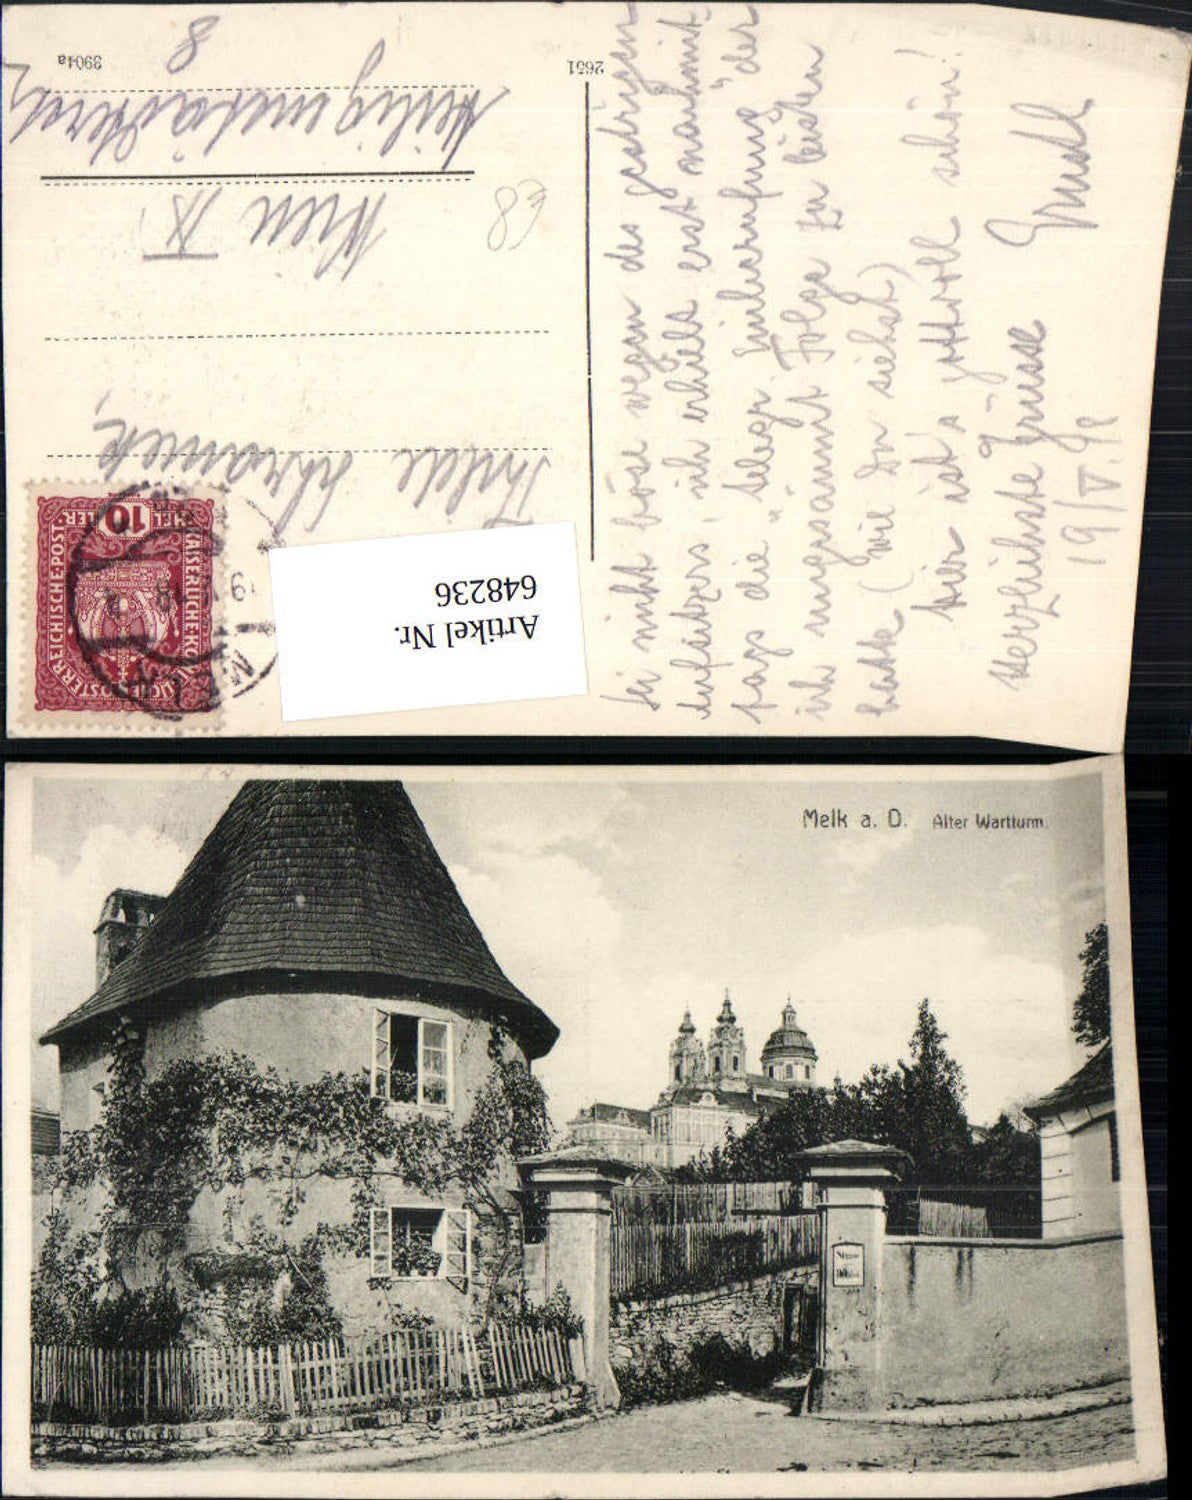 Sei nicht böse wegen des gestrigen
Aufsitzers, ich erhielt erst nachmit-
tags die "telegr. Einberufung" der
ich ungesäumt Folge zu leisten
hatte (wie Du siehst)
hier ist's gottvoll schön!
Herzlichste Grüsse
19/V. 18
2651
3904a
Wien IX.
8
€8
KAISERLICHE KÖNIGLICHE ÖSTERREICHISCHE POST
10 HELLER
MELK
Artikel Nr.
648236
Melk a. D. Alter Wartturm.